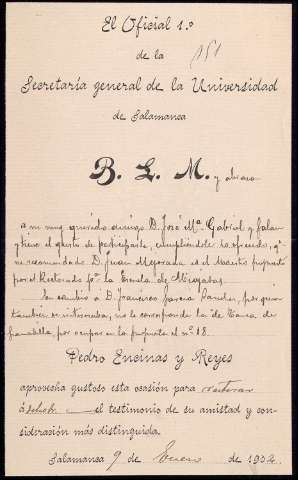 El Oficial 1.º
de la
Secretaría general de la Universidad
de Salamanca
B. L. M. y abraza
a su muy querido amigo D. José Mª Gabriel y Galan
y tiene el gusto de participarle, cumpliéndole lo ofrecido, qe
su recomendado D. Juan Mayorana es el Maestro propuesto
por el Rectorado pª la Escuela de Miajadas.
En cambio á D. Francisco Garcia Sanchez, por quien
tambien se interesaba, no le corresponde la de Casas de
por ocupar en la propuesta el nº 18.
Pedro Encinas y Reyes
aprovecha gustoso esta ocasión para reiterar
á dicho el testimonio de su amistad y con-
sideración más distinguida.
Salamanca 9 de Enero de 1902